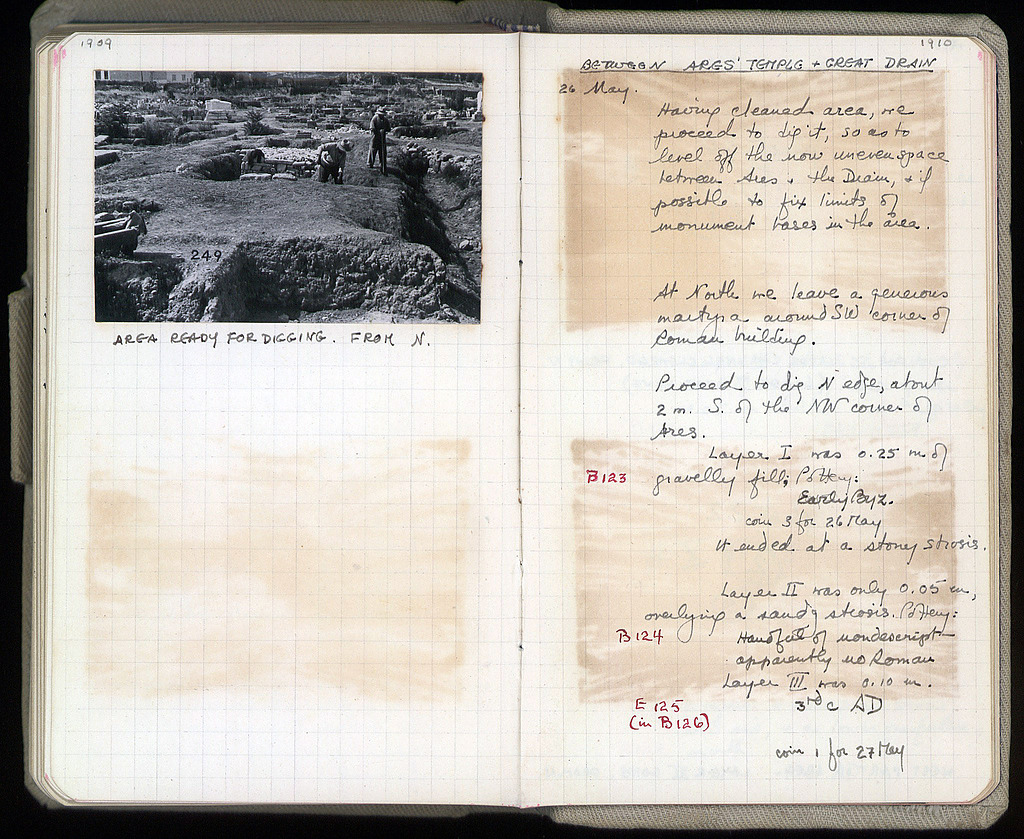 1909
249
AREA READY FOR DIGGING. FROM N.
1910
BETWEEN ARES' TEMPLE + GREAT DRAIN
26 May.
Having cleaned area, we
proceed to dig it, so as to
level off the now uneven space
between Ares + the Drain, + if
possible to fix limits of
monument bases in the area.
At North we leave a generous
martyra around SW corner of
Roman building.
Proceed to dig N edge, about
2 m. S. of the NW corner of
Ares.
Layer I was 0.25 m of
B123 gravelly fill; Pottery:
Early Byz.
coin 3 for 26 May
It ended at a stoney strosis.
Layer II was only 0.05 m,
overlying a sandy strosis. Pottery:
B124 Handful of nondescript
apparently no Roman
Layer III was 0.10 m.
E 125 3rd c AD
(in B126)
coin 1 for 27 May